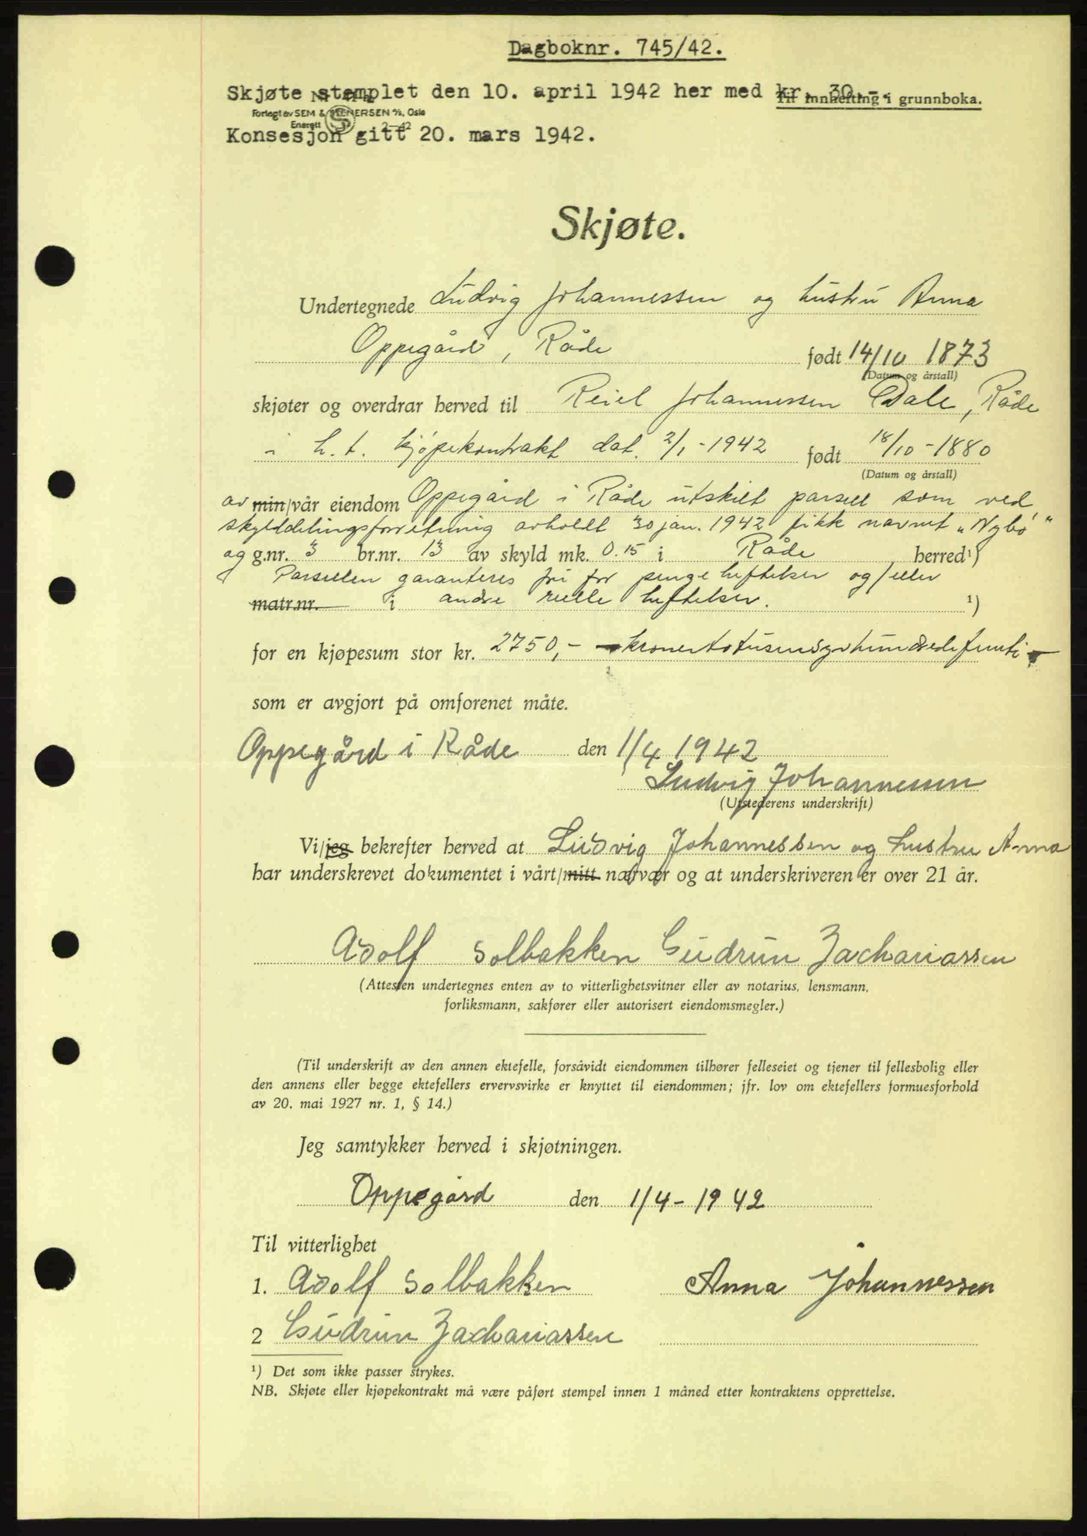 Dagboknr. 745/42.
Skjøte stemplet den 10. april 1942 her med kr. 30.-.
Til innhefting i grunnboka.
Forlagt av SEM & STENERSEN A/S, Oslo
Enerett 2-42
Konsesjon gitt 20. mars 1942.
Skjøte.
Undertegnede Ludvig Johannessen og hustru Anna
Oppegård, Råde født 14/10 1873
(Datum og årstall)
skjøter og overdrar herved til Reiel Johannessen Dale, Råde
i h.t. kjøpekontrakt dat. 2/1-1942 født 18/10-1880
(Datum og årstall)
av min/vår eiendom Oppegård i Råde utskilt parsell som ved
skylddelingsforretning avholdt 30 jan. 1942 fikk navnet „Nybo"
og g.nr. 3 br.nr. 13 av skyld mk. 0.15 i Råde herred¹)
Parsellen garanteres fri for pengeheftelser og/eller
matr.nr. i andre reelle heftelser. ¹)
for en kjøpesum stor kr. 2750,- kronertotusensyvhundredefemti
som er avgjort på omforenet måte.
Oppegård i Råde den 1/4 1942
Ludvig Johannessen
(Utstederens underskrift)
Vi/jeg bekrefter herved at Ludvig Johannessen og hustru Anna
har underskrevet dokumentet i vårt/mitt nærvær og at underskriveren er over 21 år.
Adolf Solbakken Gudrun Zachariassen
(Attesten undertegnes enten av to vitterlighetsvitner eller av notarius, lensmann,
forliksmann, sakfører eller autorisert eiendomsmegler.)
(Til underskrift av den annen ektefelle, forsåvidt eiendommen tilhører felleseiet og tjener til fellesbolig eller
den annens eller begge ektefellers ervervsvirke er knyttet til eiendommen; jfr. lov om ektefellers formuesforhold
av 20. mai 1927 nr. 1, § 14.)
Jeg samtykker herved i skjøtningen.
Oppegård den 1/4-1942
Til vitterlighet
1. Adolf Solbakken Anna Johannessen
2 Gudrun Zachariassen
¹) Det som ikke passer strykes.
NB. Skjøte eller kjøpekontrakt må være påført stempel innen 1 måned etter kontraktens opprettelse.